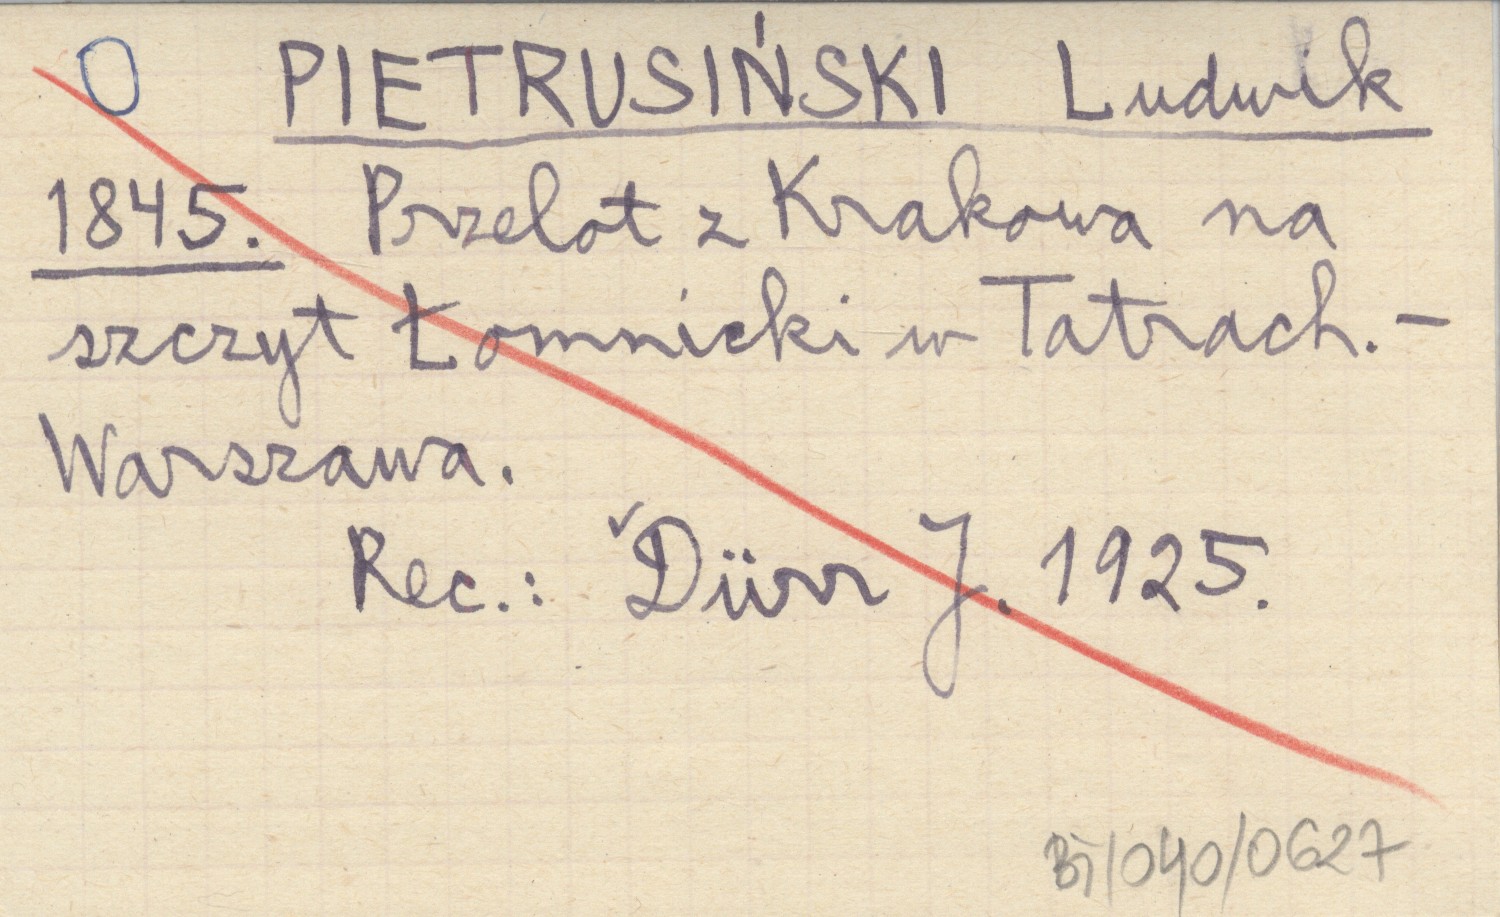 O PIETRUSIŃSKI Ludwik
1845. Przelot z Krakowa na
szczyt Łomnicki w Tatrach. –
Warszawa.
Rec.: ˇDürr J. 1925.
BT/040/0627